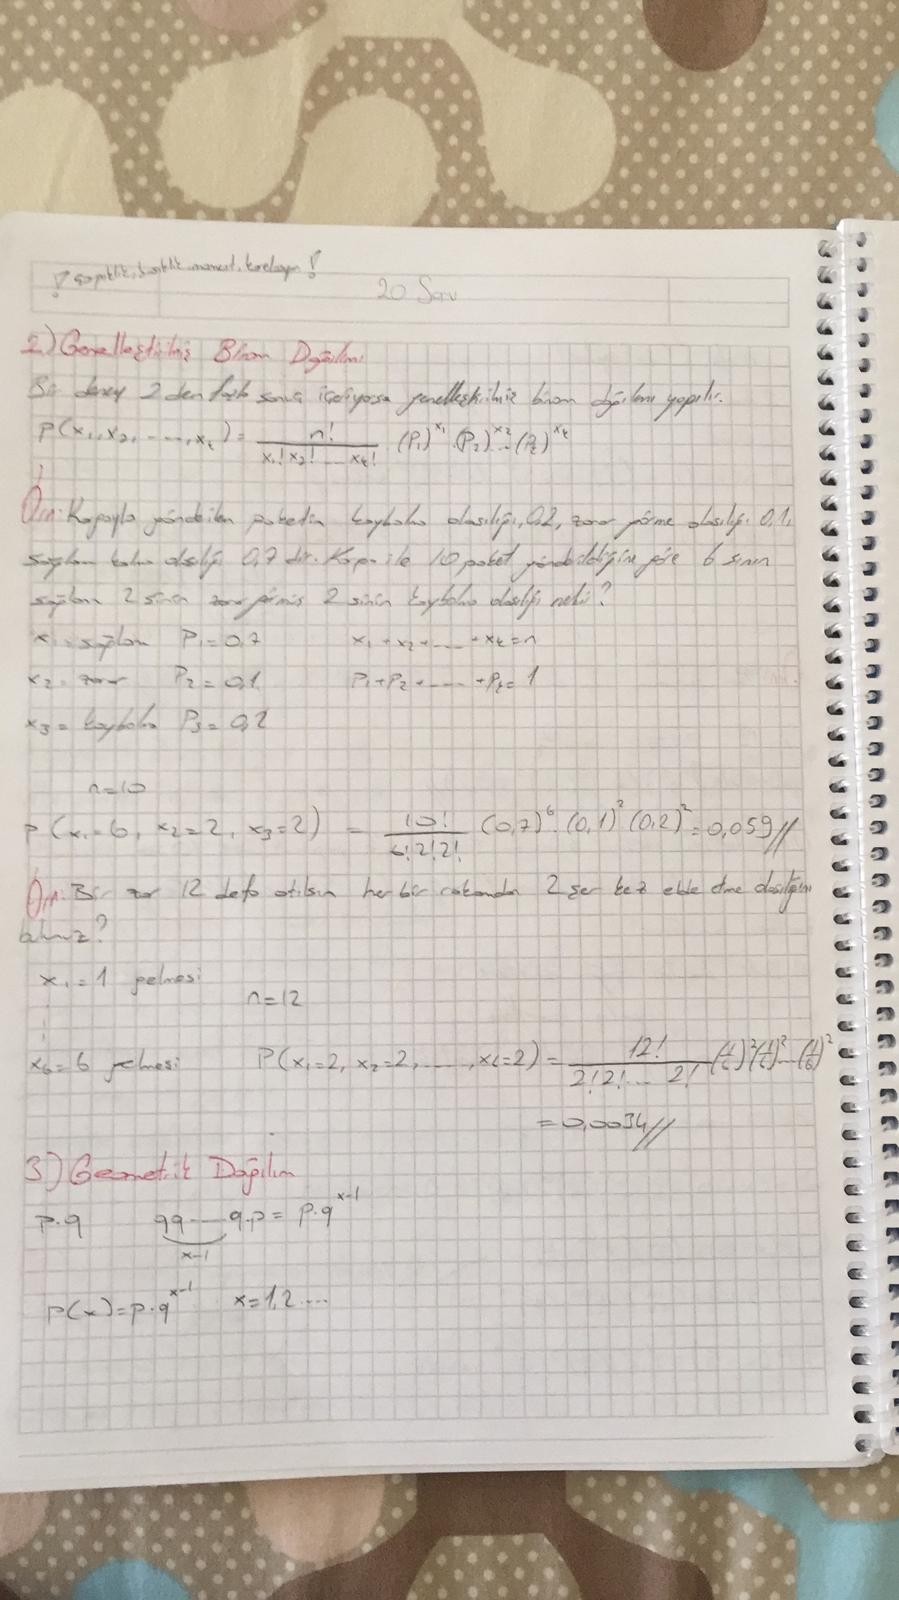 ! çarpıklık, basıklık, moment, korelasyon !
20 Soru
2) Genelleştirilmiş Binom Dağılımı
Bir deney 2 den fazla sonuç içeriyorsa genelleştirilmiş binom dağılımı yapılır.
P(x₁,x₂,....,xₖ) = n! / (x₁! x₂! ... xₖ!) · (P₁)^x₁ · (P₂)^x₂ ... (Pₖ)^xₖ
Örn: Kargoyla gönderilen paketin kaybolma olasılığı 0,2, zarar görme olasılığı 0,1,
sağlam kalma olasılığı 0,7 dir. Kargo ile 10 paket gönderildiğine göre 6 sının
sağlam 2 sinin zarar görmüş 2 sinin kaybolma olasılığı nedir?
x₁ = sağlam P₁ = 0,7 x₁ + x₂ + .... + xₖ = n
x₂ = zarar P₂ = 0,1 P₁ + P₂ + .... + Pₖ = 1
x₃ = kaybolma P₃ = 0,2
n=10
P(x₁=6, x₂=2, x₃=2) = 10! / (6! 2! 2!) (0,7)^6 · (0,1)^2 (0,2)^2 = 0,059//
Örn: Bir zar 12 defa atılsın her bir rakamdan 2 şer kez elde etme olasılığını
bulunuz?
x₁ = 1 gelmesi
n=12
x₆ = 6 gelmesi P(x₁=2, x₂=2, ....., x₆=2) = 12! / (2! 2! ... 2!) (1/6)^2 (1/6)^2 ... (1/6)^2
= 0,0034//
3) Geometrik Dağılım
p.q qq....q.p = p.q^x-1
x-1
P(x) = p.q^x-1 x=1,2....